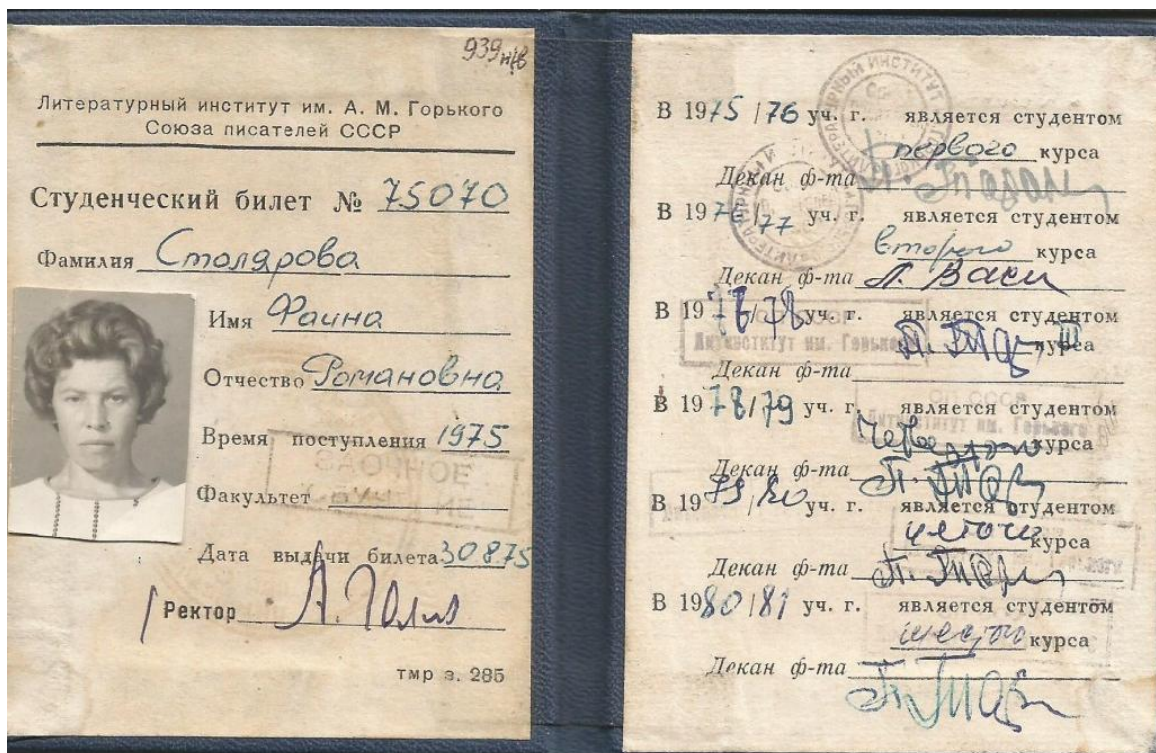 939 н/в
Литературный институт им. А. М. Горького
Союза писателей СССР
Студенческий билет № 75070
Фамилия Столярова
Имя Фаина
Отчество Романовна
Время поступления 1975
ЗАОЧНОЕ
Факультет
Дата выдачи билета 30875
Ректор
тмр з. 285
В 1975/76 уч. г. является студентом
первого курса
Декан ф-та
В 1976/77 уч. г. является студентом
второго курса
Декан ф-та
В 197 /78 уч. г. является студентом
III курса
Литинститут им. Горького
Декан ф-та
В 1978/79 уч. г. является студентом
СП СССР
Литинститут им. Горького
курса
Декан ф-та
В 1979/80 уч. г. является студентом
курса
Декан ф-та
В 1980/81 уч. г. является студентом
шестого курса
Декан ф-та